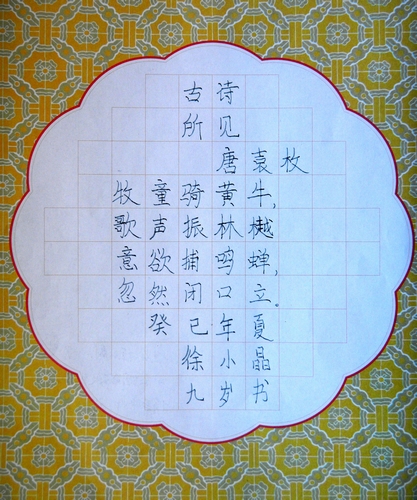 古诗
所见
唐袁枚
牧童骑黄牛,
歌声振林樾
意欲捕鸣蝉,
忽然闭口立。
癸巳年夏
徐小晶
九岁书